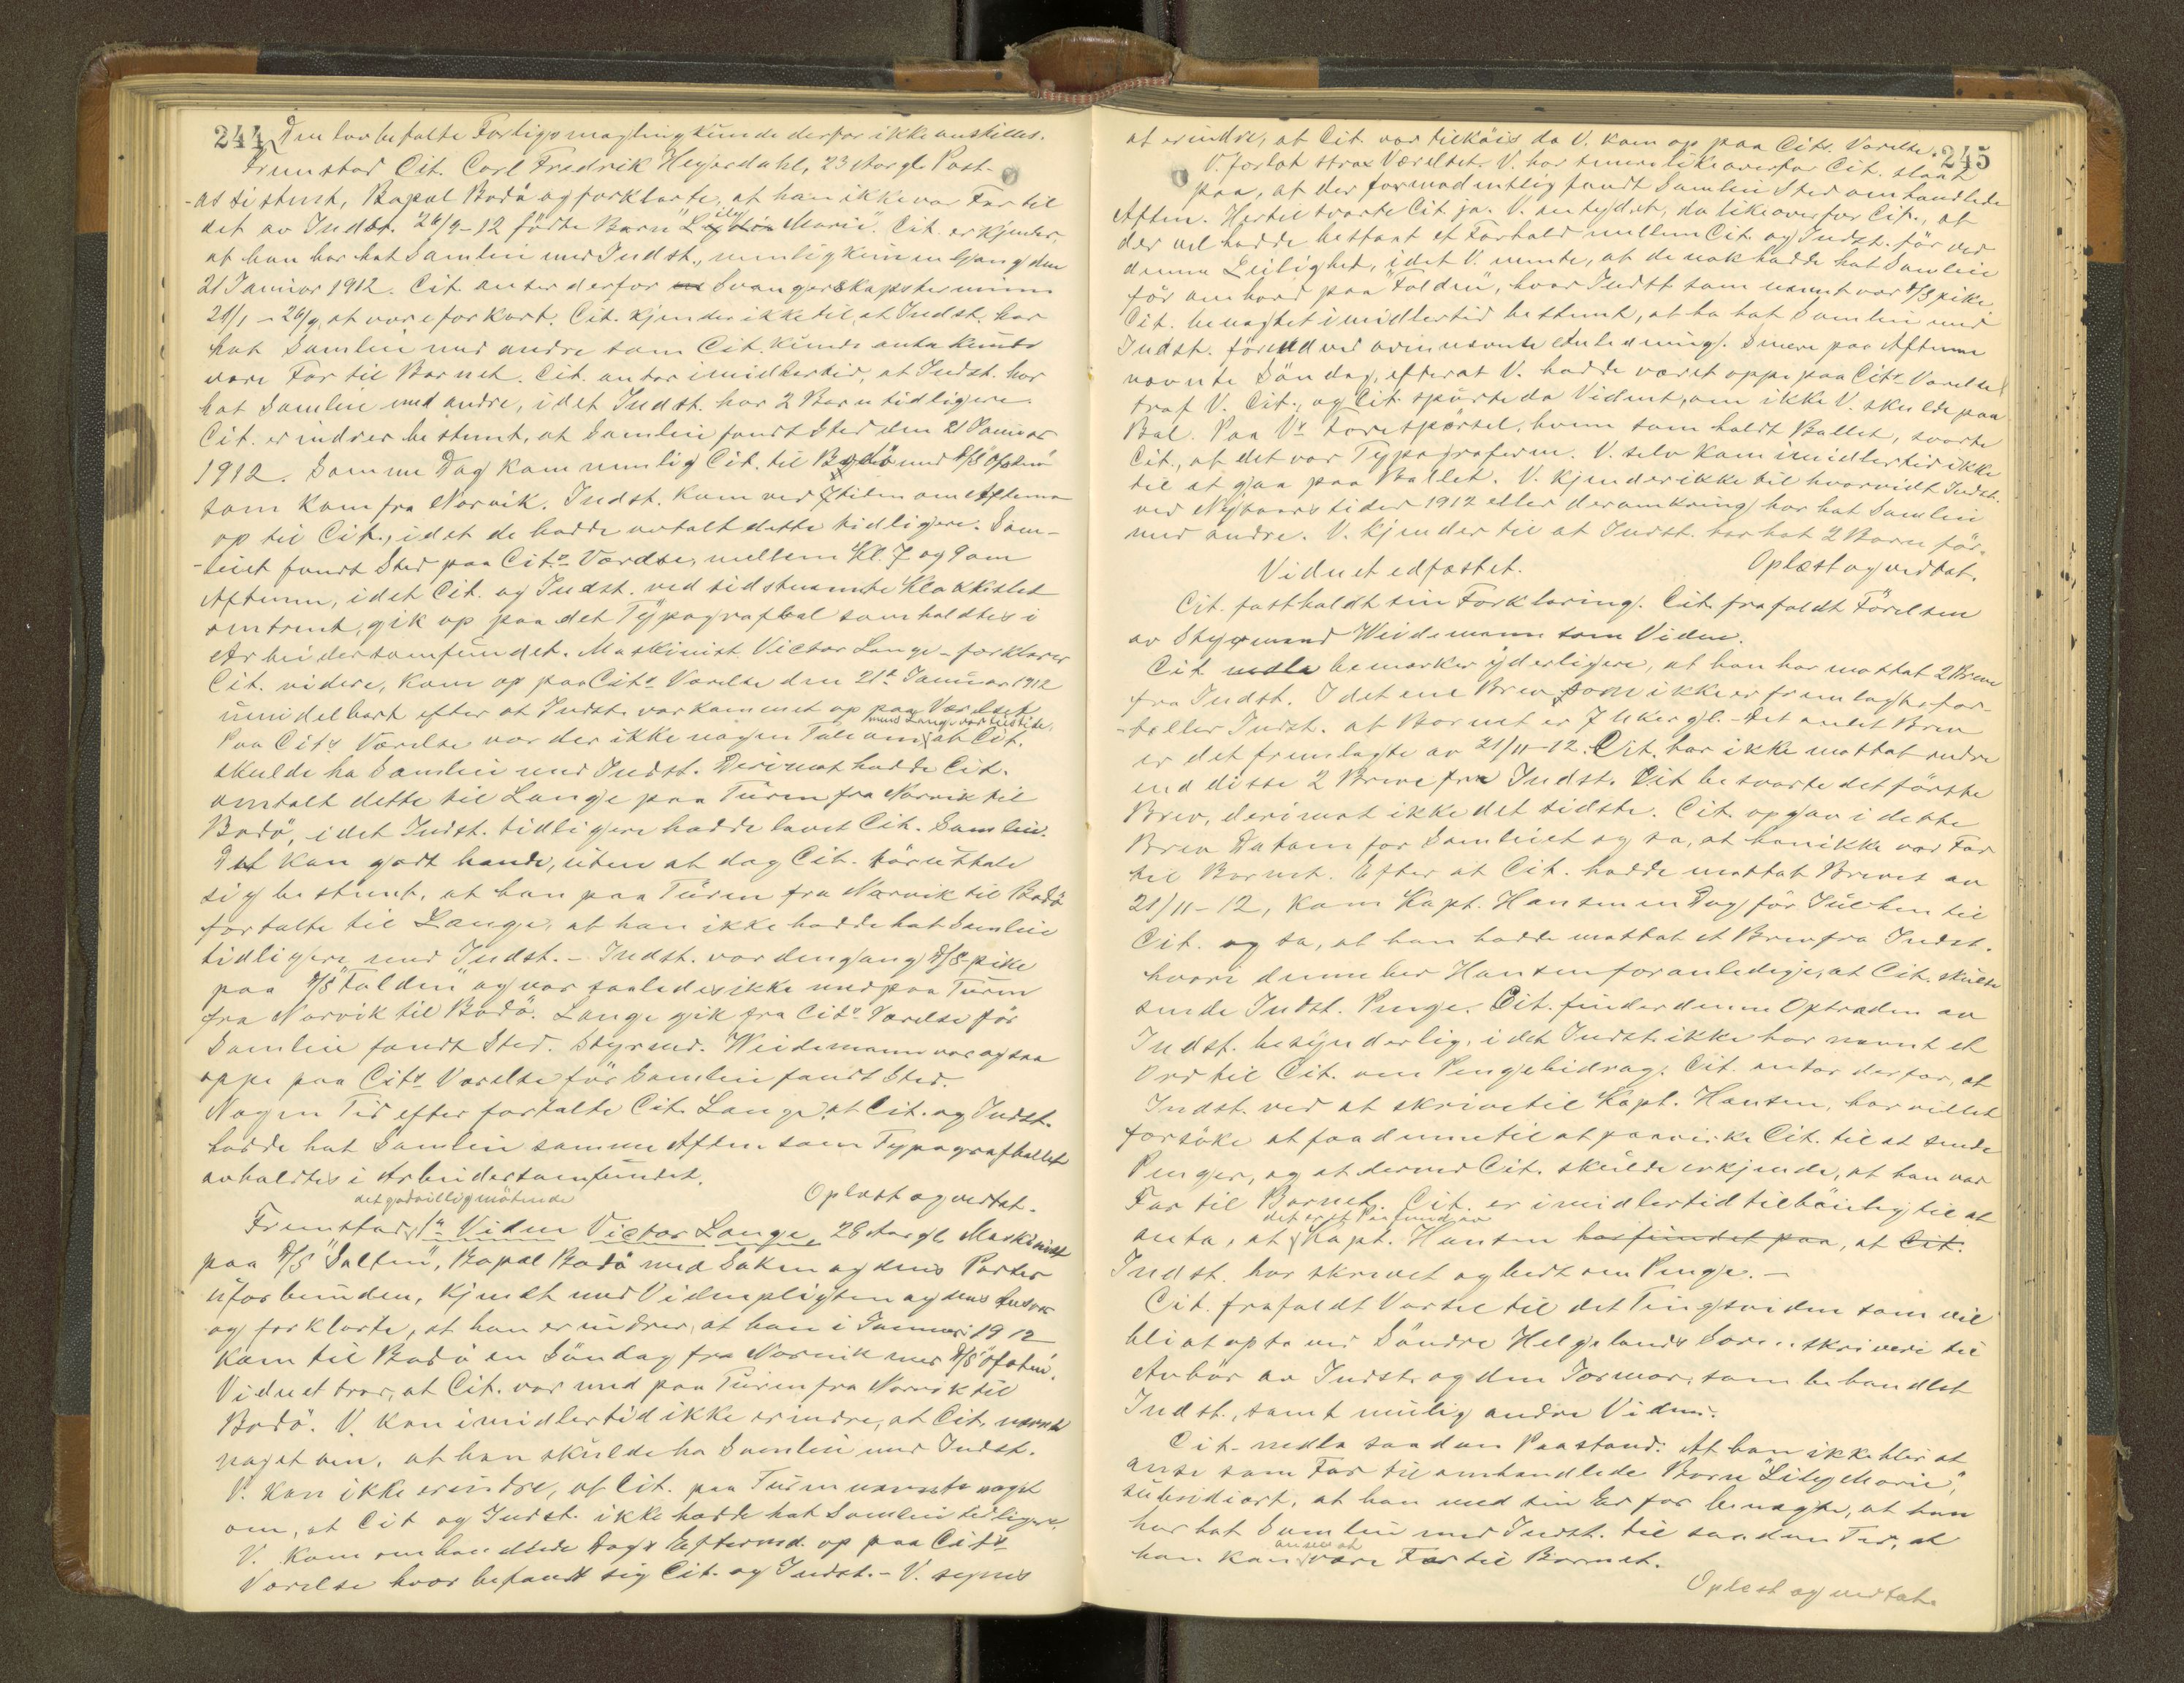 244 Den lovbefalte Forligsmægling kunde derfor ikke anstilles.
Fremstod Cit. Carl Fredrik Heyerdahl, 23 Aar gl. Post-
assistent, Bopæl Bodö og forklarte, at han ikke var Far til
det av Indst. 26/9-12 födte Barn "Lily Marie". Cit. erkjender,
at han har hat Samleie med Indst., nemlig kun en Gang den
21 Januar 1912. Cit. anser derfor Svangerskapsterminen
21/1 - 26/9 at være for kort. Cit. kjender ikke til, at Indst. har
hat Samleie med andre som Cit. kunde anta kunde
være Far til Barnet. Cit. antar imidlertid, at Indst. har
hat Samleie med andre, idet Indst. har 2 Barn tidligere.
Cit. erindrer bestemt, at Samleie fandt Sted den 21 Januar
1912. Samme Dag kom nemlig Cit. til Bodö med D/S "Ofoten"
som kom fra Narvik. Indst. kom ved 7 tiden om Aftenen
op til Cit., idet de hadde avtalt dette tidligere. Sam-
leiet fandt Sted paa Cits Værelse, mellem Kl. 7 og 9 om
Aftenen, idet Cit. og Indst. ved sidstnævnte Klokkeslet
omtrent, gik op paa det Typografbal som holdtes i
Arbeidersamfundet. Maskinist Victor Lange - forklarer
Cit. videre, kom op paa Cits Værelse den 21de Januar 1912
umidelbart efter at Indst. var kommet op paa Værelset.
Paa Cits Værelse var der ikke nogen Tale om mens Lange var tilstede, at Cit.
skulde ha Samleie med Indst. Derimot hadde Cit.
omtalt dette til Lange paa Turen fra Narvik til
Bodö, idet Indst. tidligere hadde lovet Cit. Samleie.
Det kan godt hænde, uten at dog Cit. tör uttale
sig bestemt, at han paa Turen fra Narvik til Bodö
fortalte til Lange, at han ikke hadde hat Samleie
tidligere med Indst. - Indst. var dengang D/S pike
paa D/S "Folden" og var saaledes ikke med paa Turen
fra Narvik til Bodö. Lange gik fra Cits Værelse för
Samleie fandt Sted. Styrmd. Weidemann var ogsaa
oppe paa Cits Værelse för Samleie fandt Sted.
Nogen Tid efter fortalte Cit. Lange, at Cit. og Indst.
hadde hat Samleie samme Aften som Typografballet
avholdtes i Arbeidersamfundet.
Oplæst og vedtat.
det godvillig mötende
Fremstod 1te Viden Victor Lange, 28 Aar gl. Maskinist
paa D/S "Salten", Bopæl Bodö med Saken og dens Parter
uforbunden, kjendt med Videnpligten og dens Ansvar
og forklarte, at han erindrer, at han i Januar 1912
kom til Bodö en Söndag fra Narvik med D/S "Ofoten".
Vidnet tror, at Cit. var med paa Turen fra Narvik til
Bodö. V. kan imidlertid ikke erindre, at Cit. nævnte
noget om, at han skulde ha Samleie med Indst.
V. kan ikke erindre, at Cit. paa Turen nævnte noget
om, at Cit og Indst. ikke hadde hat Samleie tidligere.
V. kom omhandlede Dags Eftermd. op paa Cits
Værelse hvor befandt sig Cit. og Indst. - V. synes
245
at erindre, at Cit. var tilköis da V. kom op paa Cits. Værelse.
V. forlot strax Værelset. V. har senere likeoverfor Cit. slaat
paa, at der formodentlig fandt Samleie Sted omhandlede
Aften. Hertil svarte Cit. ja. V. antydet, da likeoverfor Cit., at
der vel hadde bestaat et Forhold mellem Cit. og Indst. för ved
denne Leilighet, idet V. mente, at de nok hadde hat Samleie
för ombord paa "Folden", hvor Indst. som nævnt var D/S pike.
Cit. benægtet imidlertid bestemt, at ha hat Samleie med
Indst. förend ved ovennævnte Anledning. Senere paa Aftenen
nævnte Söndag, efterat V. hadde været oppe paa Cits Værelse
traf V. Cit., og Cit. spurte da Vidnet, om ikke V. skulde paa
Bal. Paa Vs Forespörsel, hvem som holdt Ballet, svarte
Cit., at det var Typograferne. V. selv kom imidlertid ikke
til at gaa paa Ballet. V. kjender ikke til hvorvidt Indst.
ved Nytaarstider 1912 eller deromkring har hat Samleie
med andre. V. kjender til at Indst. har hat 2 Barn för.
Vidnet edfæstet. Oplæst og vedtat.
Cit. fastholdt sin Forklaring. Cit. frafaldt Förelsen
av Styrmand Weidemann som Viden.
Cit. nedla bemærker yderligere, at han har mottat 2 Breve
fra Indst. I det ene Brev som ikke er fremlagt, for-
tæller Indst. at Barnet er 7 Uker gl. - Det andet Brev
er det fremlagte av 21/11-12. Cit. har ikke mottat andre
end disse 2 Breve fra Indst. Cit besvarte det förste
Brev, derimot ikke det sidste. Cit. opgav i dette
Brev Datoen for Samleiet og sa, at han ikke var Far
til Barnet. Efter at Cit. hadde mottat Brevet av
21/11-12, kom Kapt. Hansen en Dag för Jul hen til
Cit. og sa, at han hadde mottat et Brev fra Indst.
hvori denne ber Hansen foranledige, at Cit. skulde
sende Indst. Penge. Cit. finder denne Optræden av
Indst. besynderlig, idet Indst. ikke har nævnt et
Ord til Cit. om Pengebidrag. Cit. antar derfor, at
Indst. ved at skrive til Kapt. Hansen, har villet
forsöke at faa denne til at paavirke Cit. til at sende
Penger, og at derved Cit. skulde erkjende, at han var
Far til Barnet. Cit. er imidlertid tilböielig til at
anta, at det er et Paafund av Kapt. Hansen har fundet paa, at Cit.
Indst. har skrevet og bedt om Penge. -
Cit. frafaldt Varsel til det Tingsvidne som vil
bli at opta ved Söndre Helgelands Sorenskriveri til
Avhör av Indst. og den Jormor, som behandlet
Indst., samt mulig andre Vidner.
Cit. nedla saadan Paastand: At han ikke blir at
anse som Far til omhandlede Barn "Lily Marie",
subsidiært, at han med sin Ed for benægte, at han
har hat Samleie med Indst. til saadan Tid, at
han kan anses at være Far til Barnet.
Oplæst og vedtat.